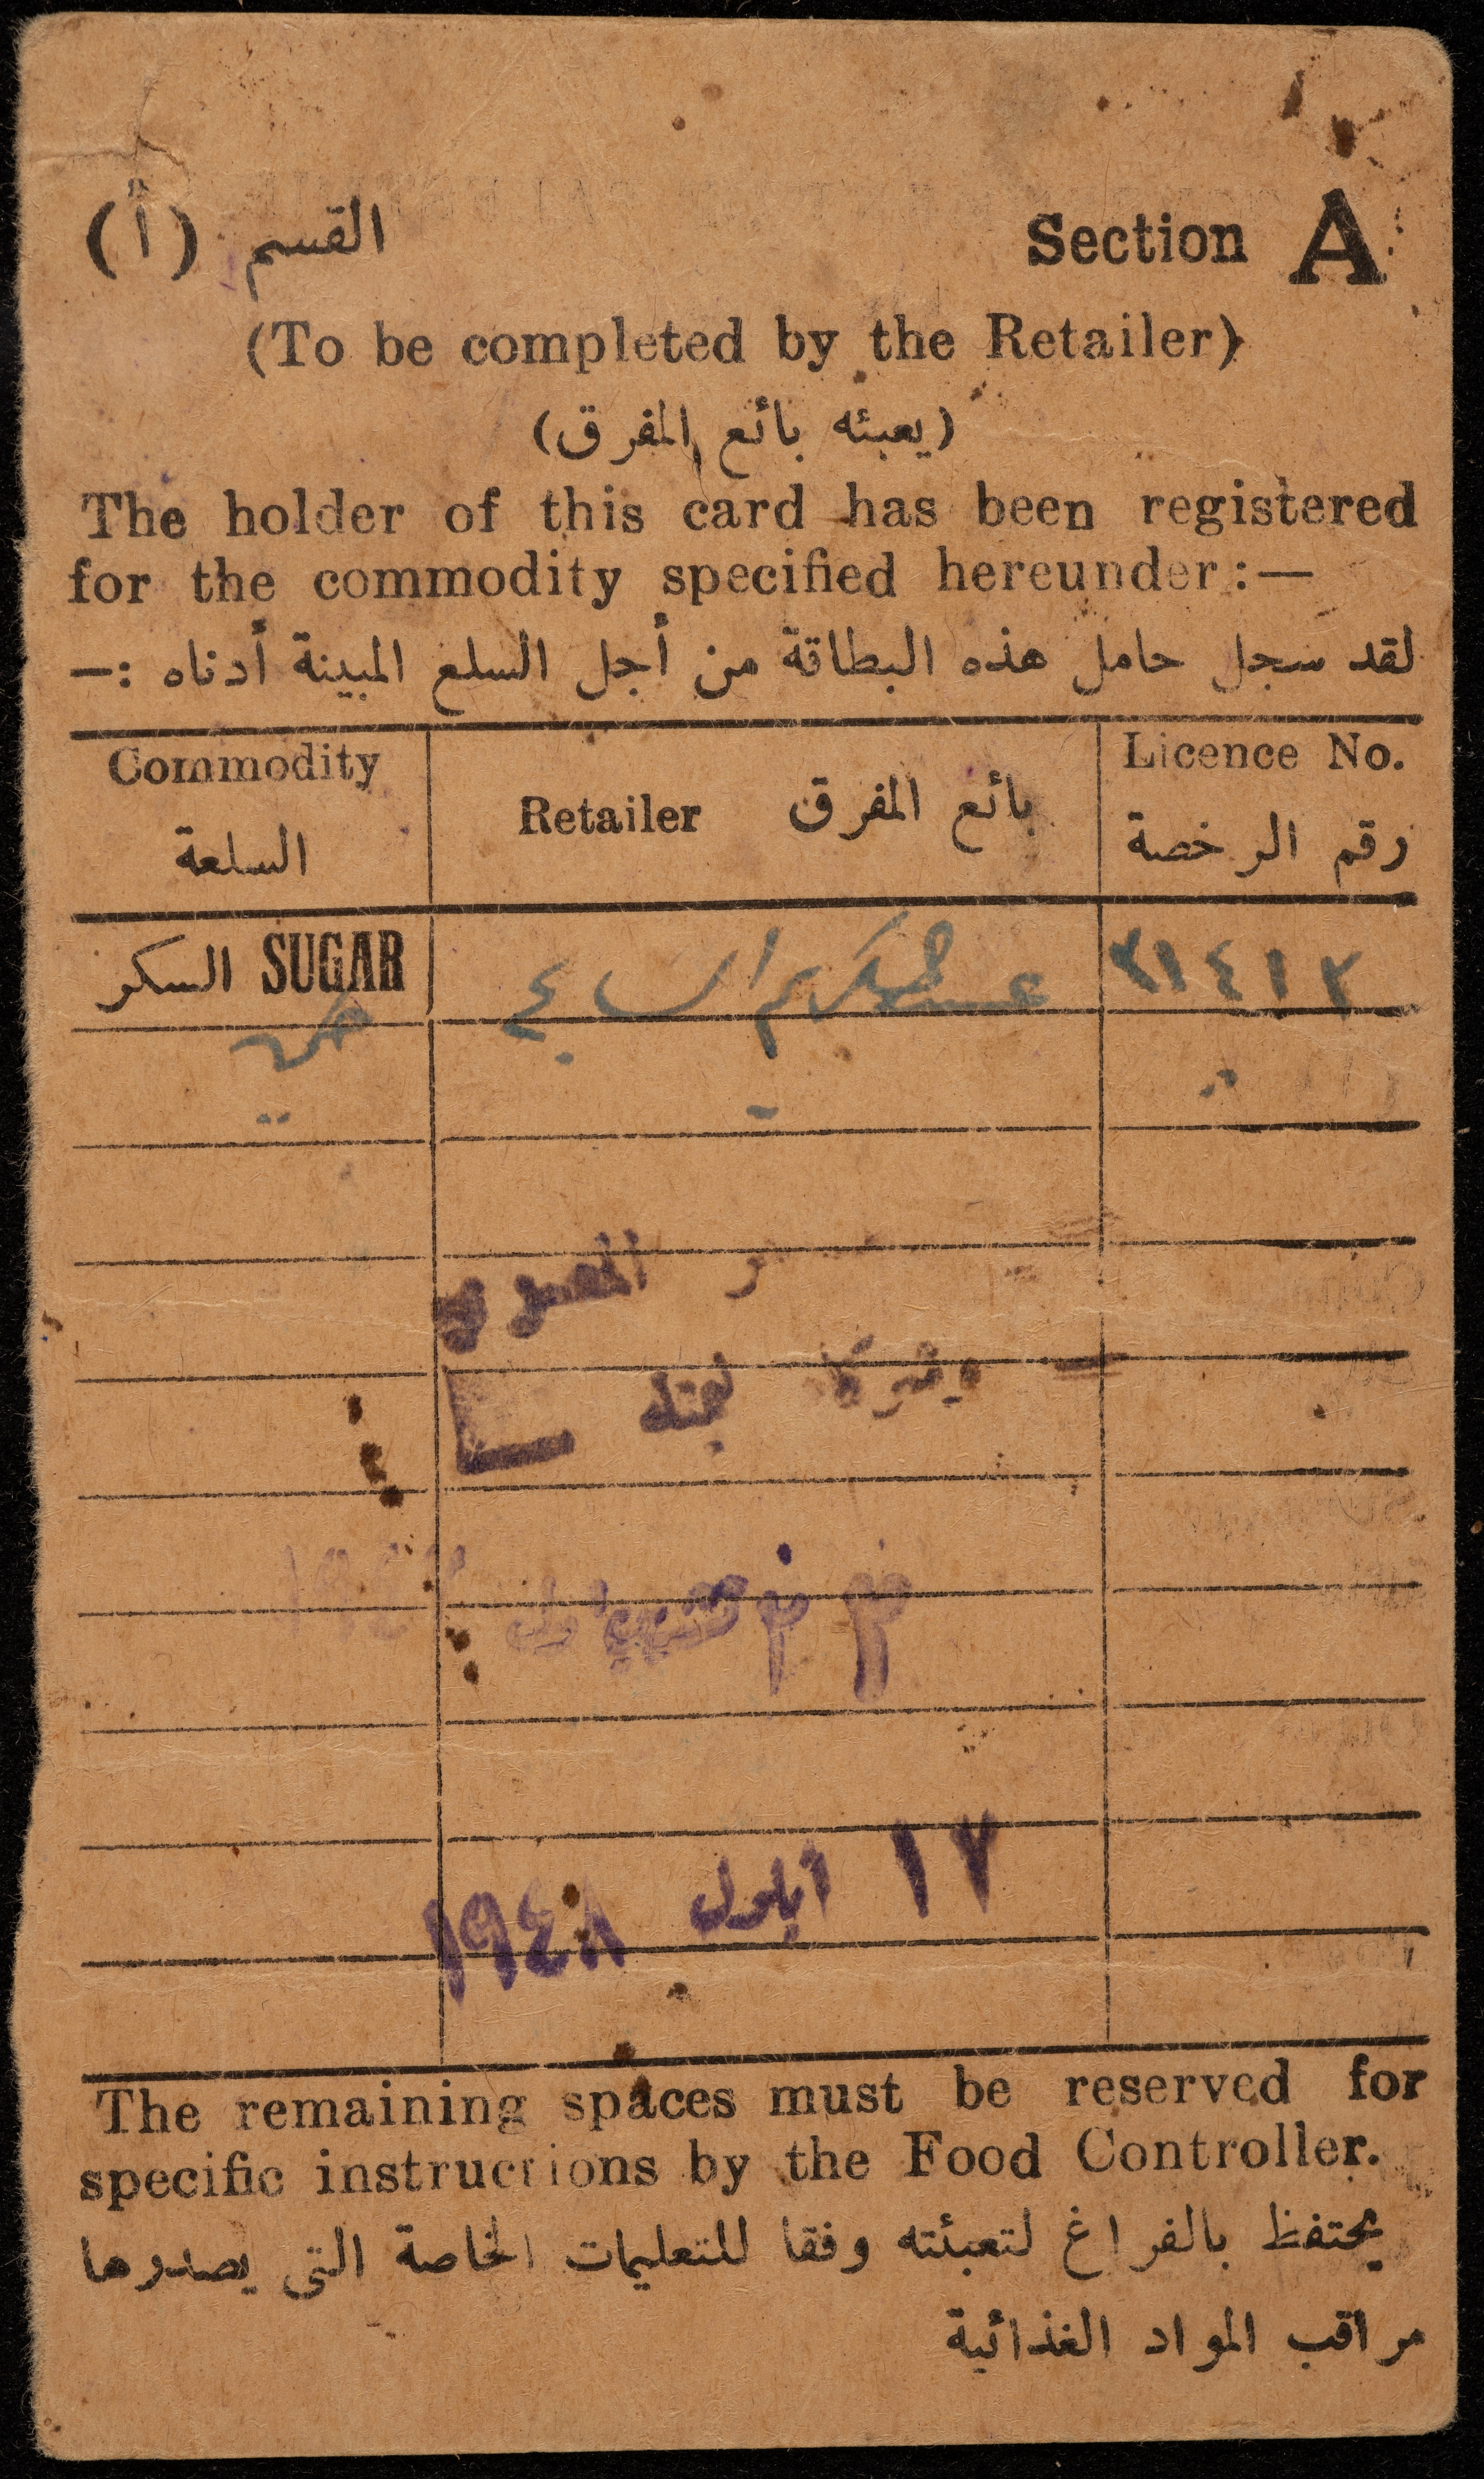 Section A القسم (أ)
(To be completed by the Retailer)
(يعبئه بائع المفرق)
The holder of this card has been registered
for the commodity specified hereunder :—
لقد سجل حامل هذه البطاقة من أجل السلع المبينة أدناه :—
Commodity السلعة
Retailer بائع المفرق
Licence No. رقم الرخصة
السكر SUGAR
١٧ ايلول ١٩٤٨
The remaining spaces must be reserved for
specific instructions by the Food Controller.
يحتفظ بالفراغ لتعبئته وفقا للتعليمات الخاصة التى يصدرها
مراقب المواد الغذائية